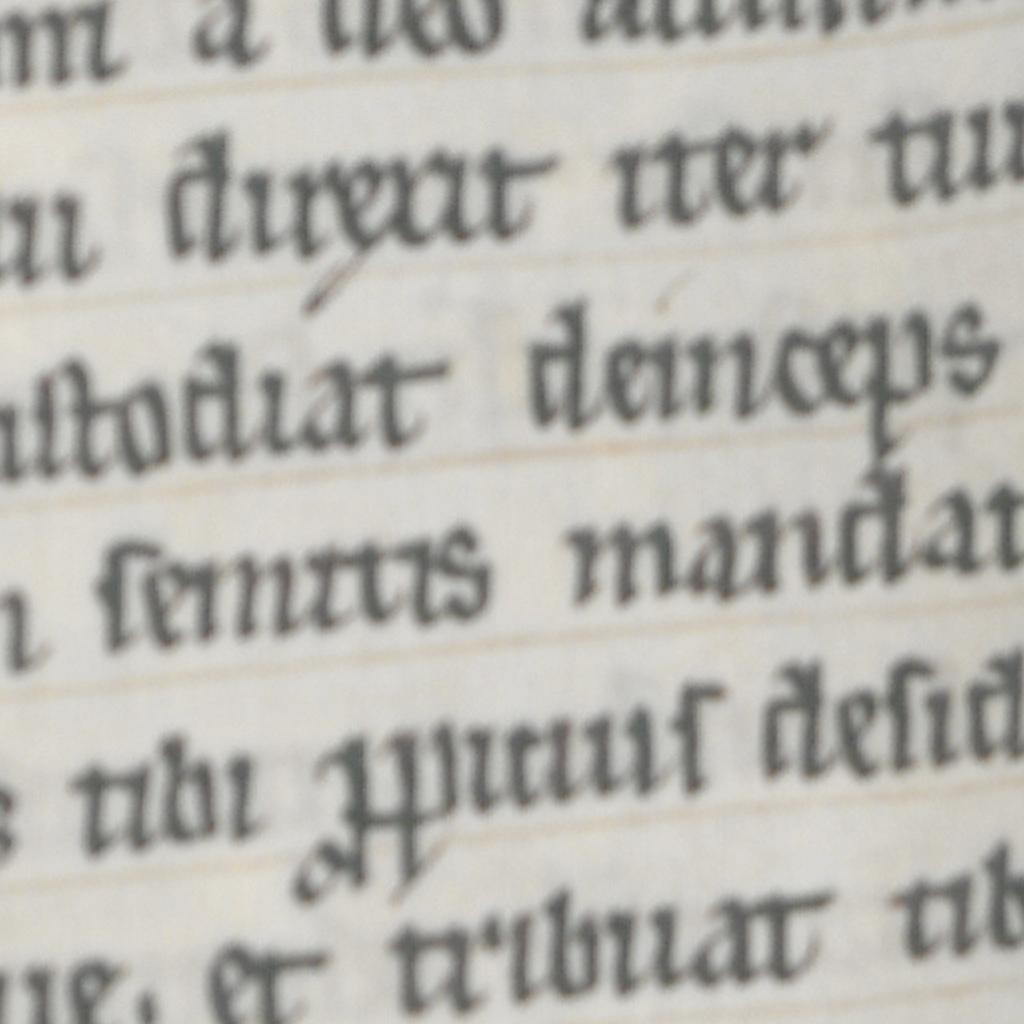 m a deo
direxit iter tuu
ustodiat deinceps
n semitis mandat
s tibi christus desid
ue. et tribuat tib